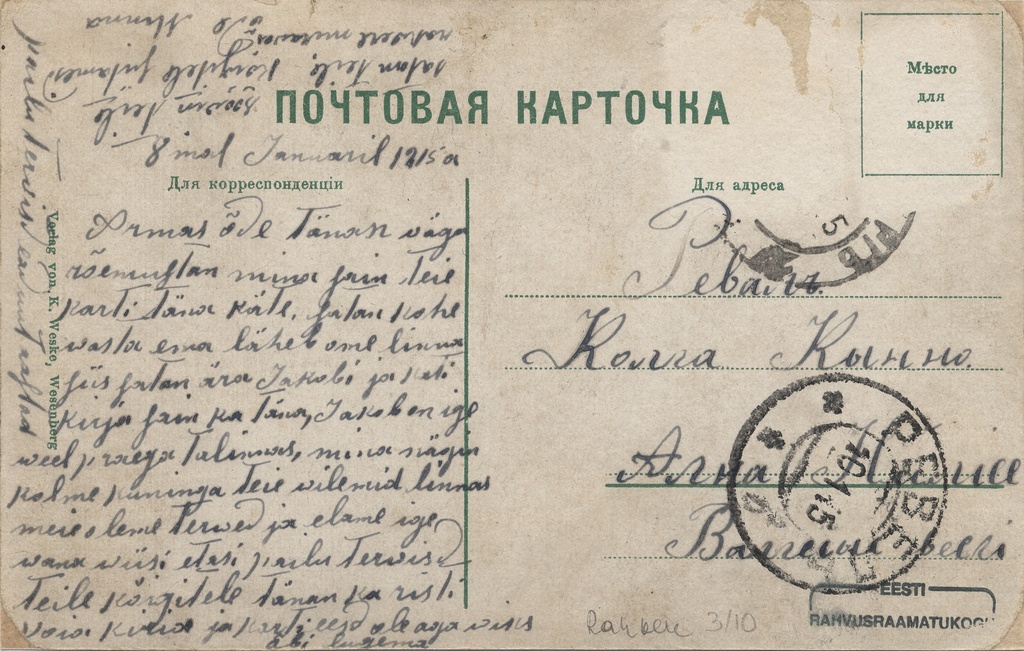 ПОЧТОВАЯ КАРТОЧКА
Мѣсто
для
марки
Для корреспонденціи
Для адреса
Verlag von K. Weske, Wesenberg
8 mal Januaril 1915 a
Armas õde tänan väga
rõemustan mina sain teie
karti täna käte, satan kohe
wasta ema läheb ome linna
siis satan ära Jakobi ja kati
kirja sain ka täna, Jakob on ige
weel praega talinnas, mina nägin
kolme kuninga teie wilemid linnas
meie oleme terwed ja elame ige
wana wiisi etasi palju terwisid
teile kõigitele tänan ka risti
ja karti eest
abi lugema
palju terwisid
satan teile kõigitele
õde Minna
Ревалъ
Колга Кынно
Анна
5
РЕВЕЛЬ
10 1 15
EESTI
RAHVUSRAAMATUKOGU
3/10